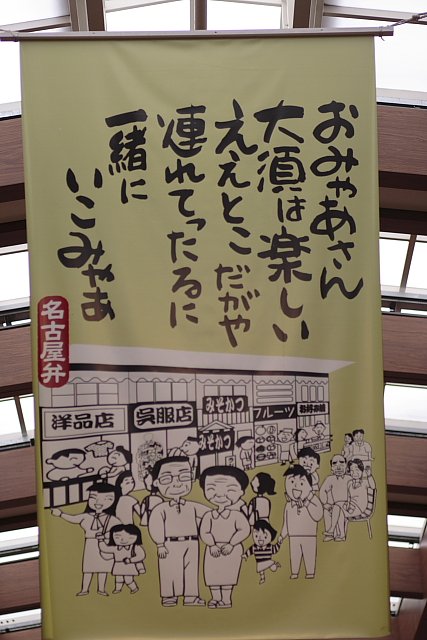 おみゃあさん
大須は楽しい
ええとこだがや
連れてったるに
一緒に
いこみゃあ
名古屋弁
洋品店
呉服店
みそかつ
みそかつ
フルーツ